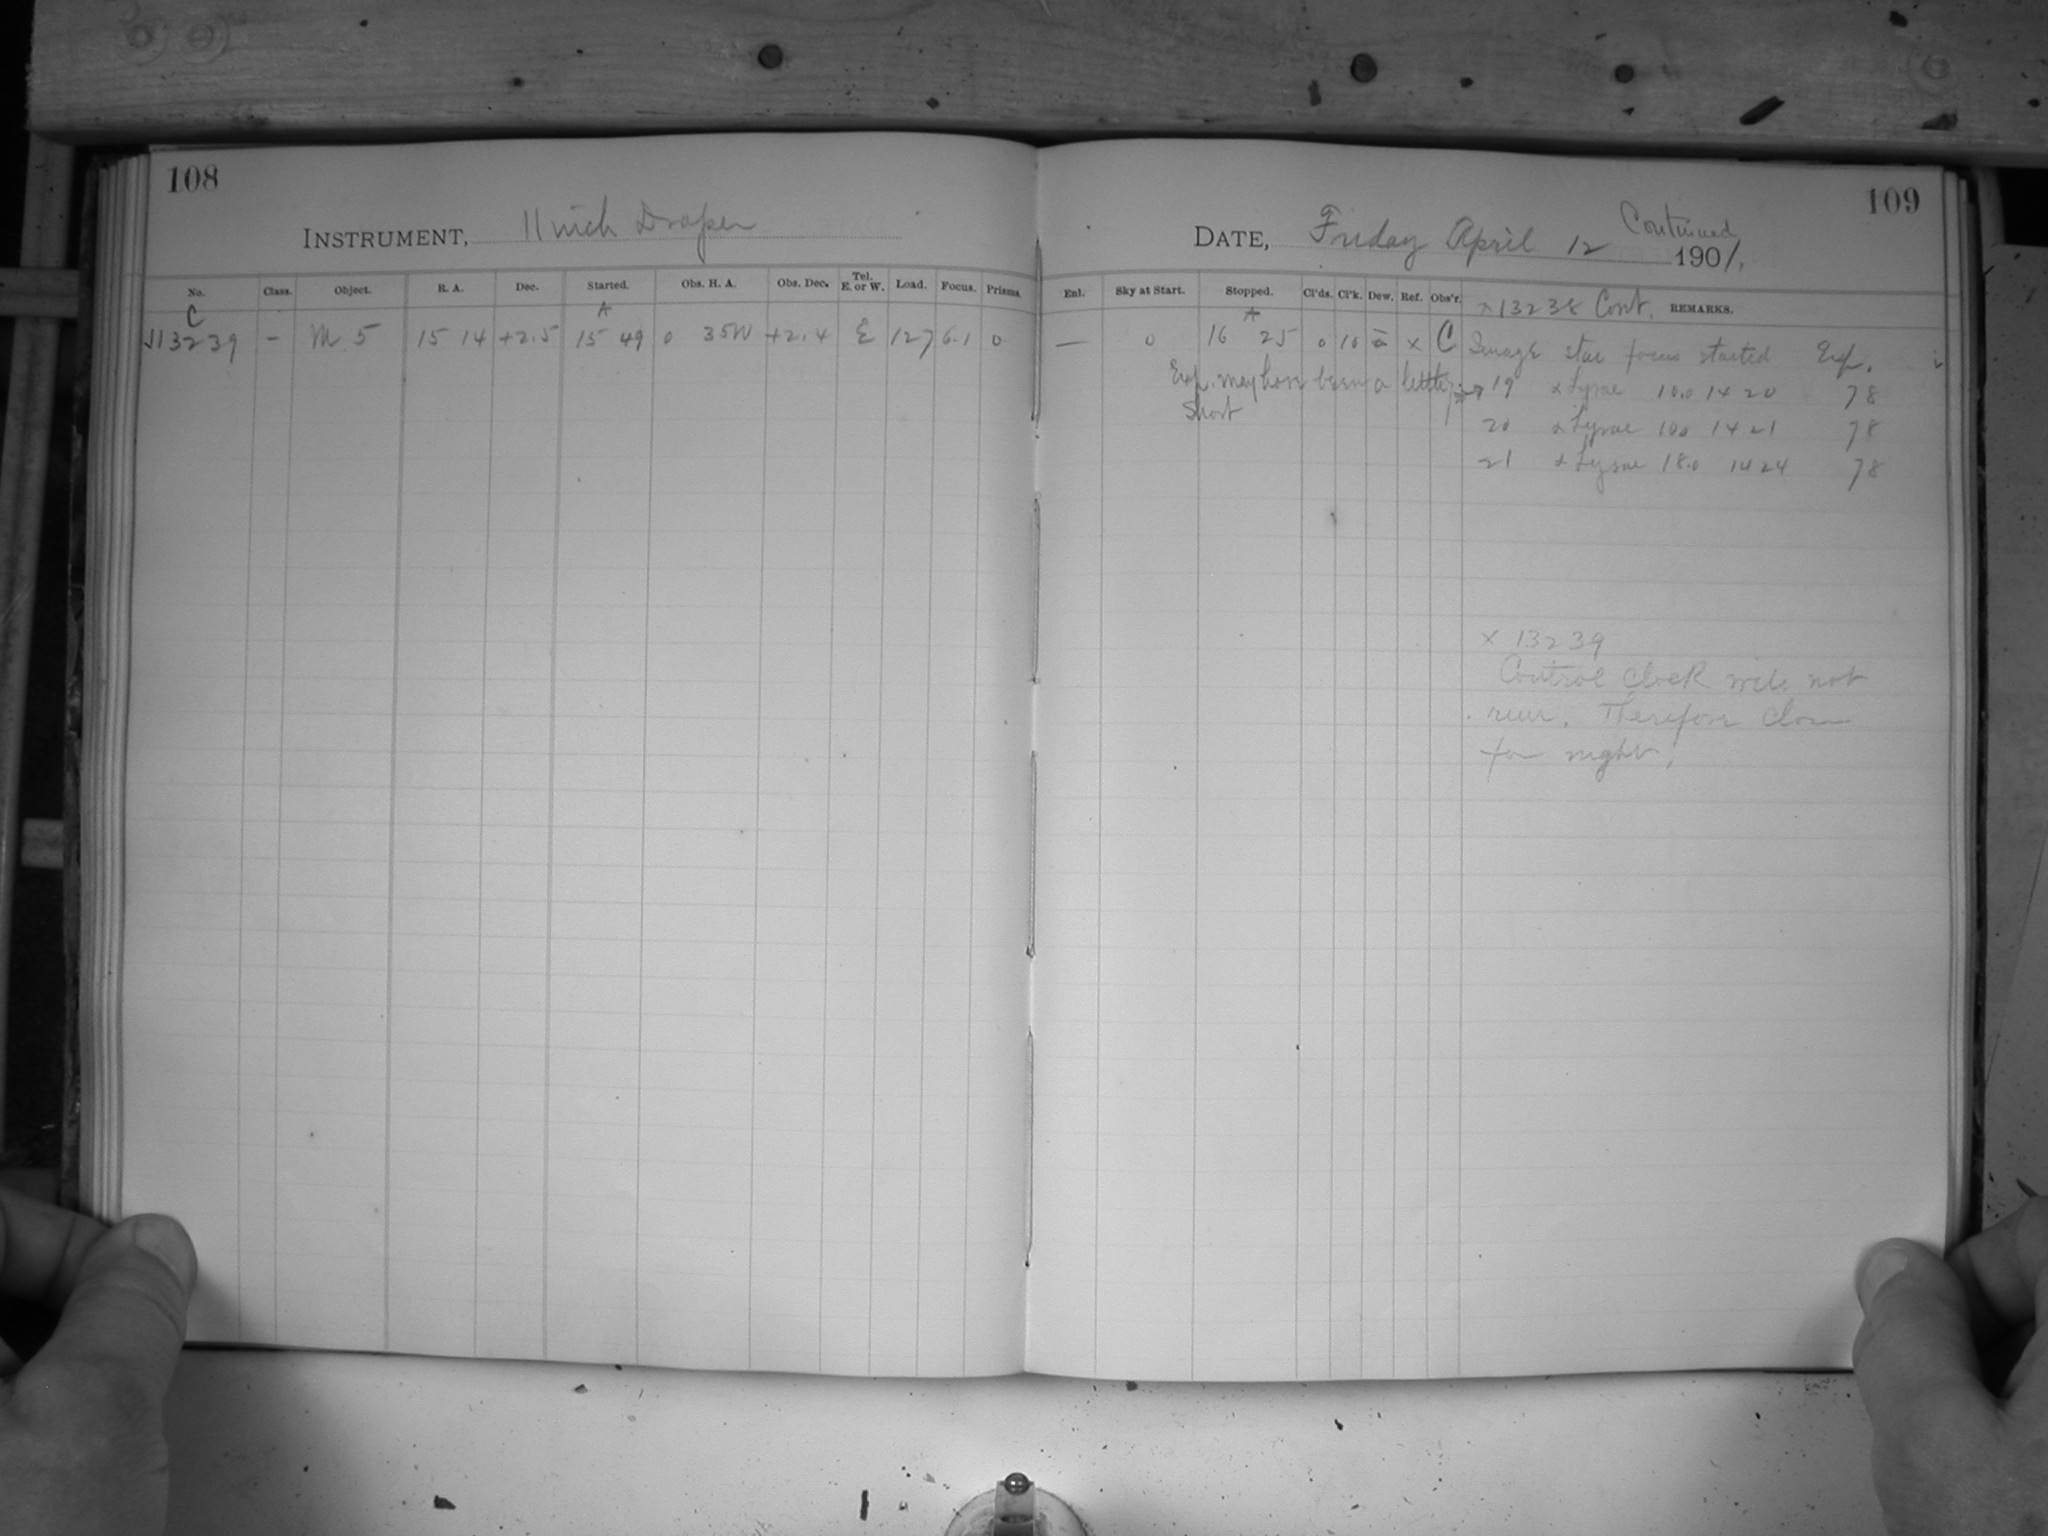 108
INSTRUMENT, 11 inch Draper
No. Class. Object. R. A. Dec. Started. Obs. H. A. Obs. Dec. Tel. E. or W. Load. Focus. Prisms.
C A
J13239 - M 5 15 14 +2.5 15 49 0 35W +2.4 E 127 6.1 0
109
Continued
DATE, Friday April 12 1901.
Enl. Sky at Start. Stopped. Cl'ds. Cl'k. Dew. Ref. Obs'r. REMARKS.
x 13238 Cont.
A
— 0 16 25 0 10 x C
Exp. may have been a little
short
Image star focus started Exp.
19 α Lyrae 10.0 14 20 78
20 α Lyrae 10.0 14 21 78
21 α Lyrae 18.0 14 24 78
x 13239
Control clock will not
run. Therefore close
for night.